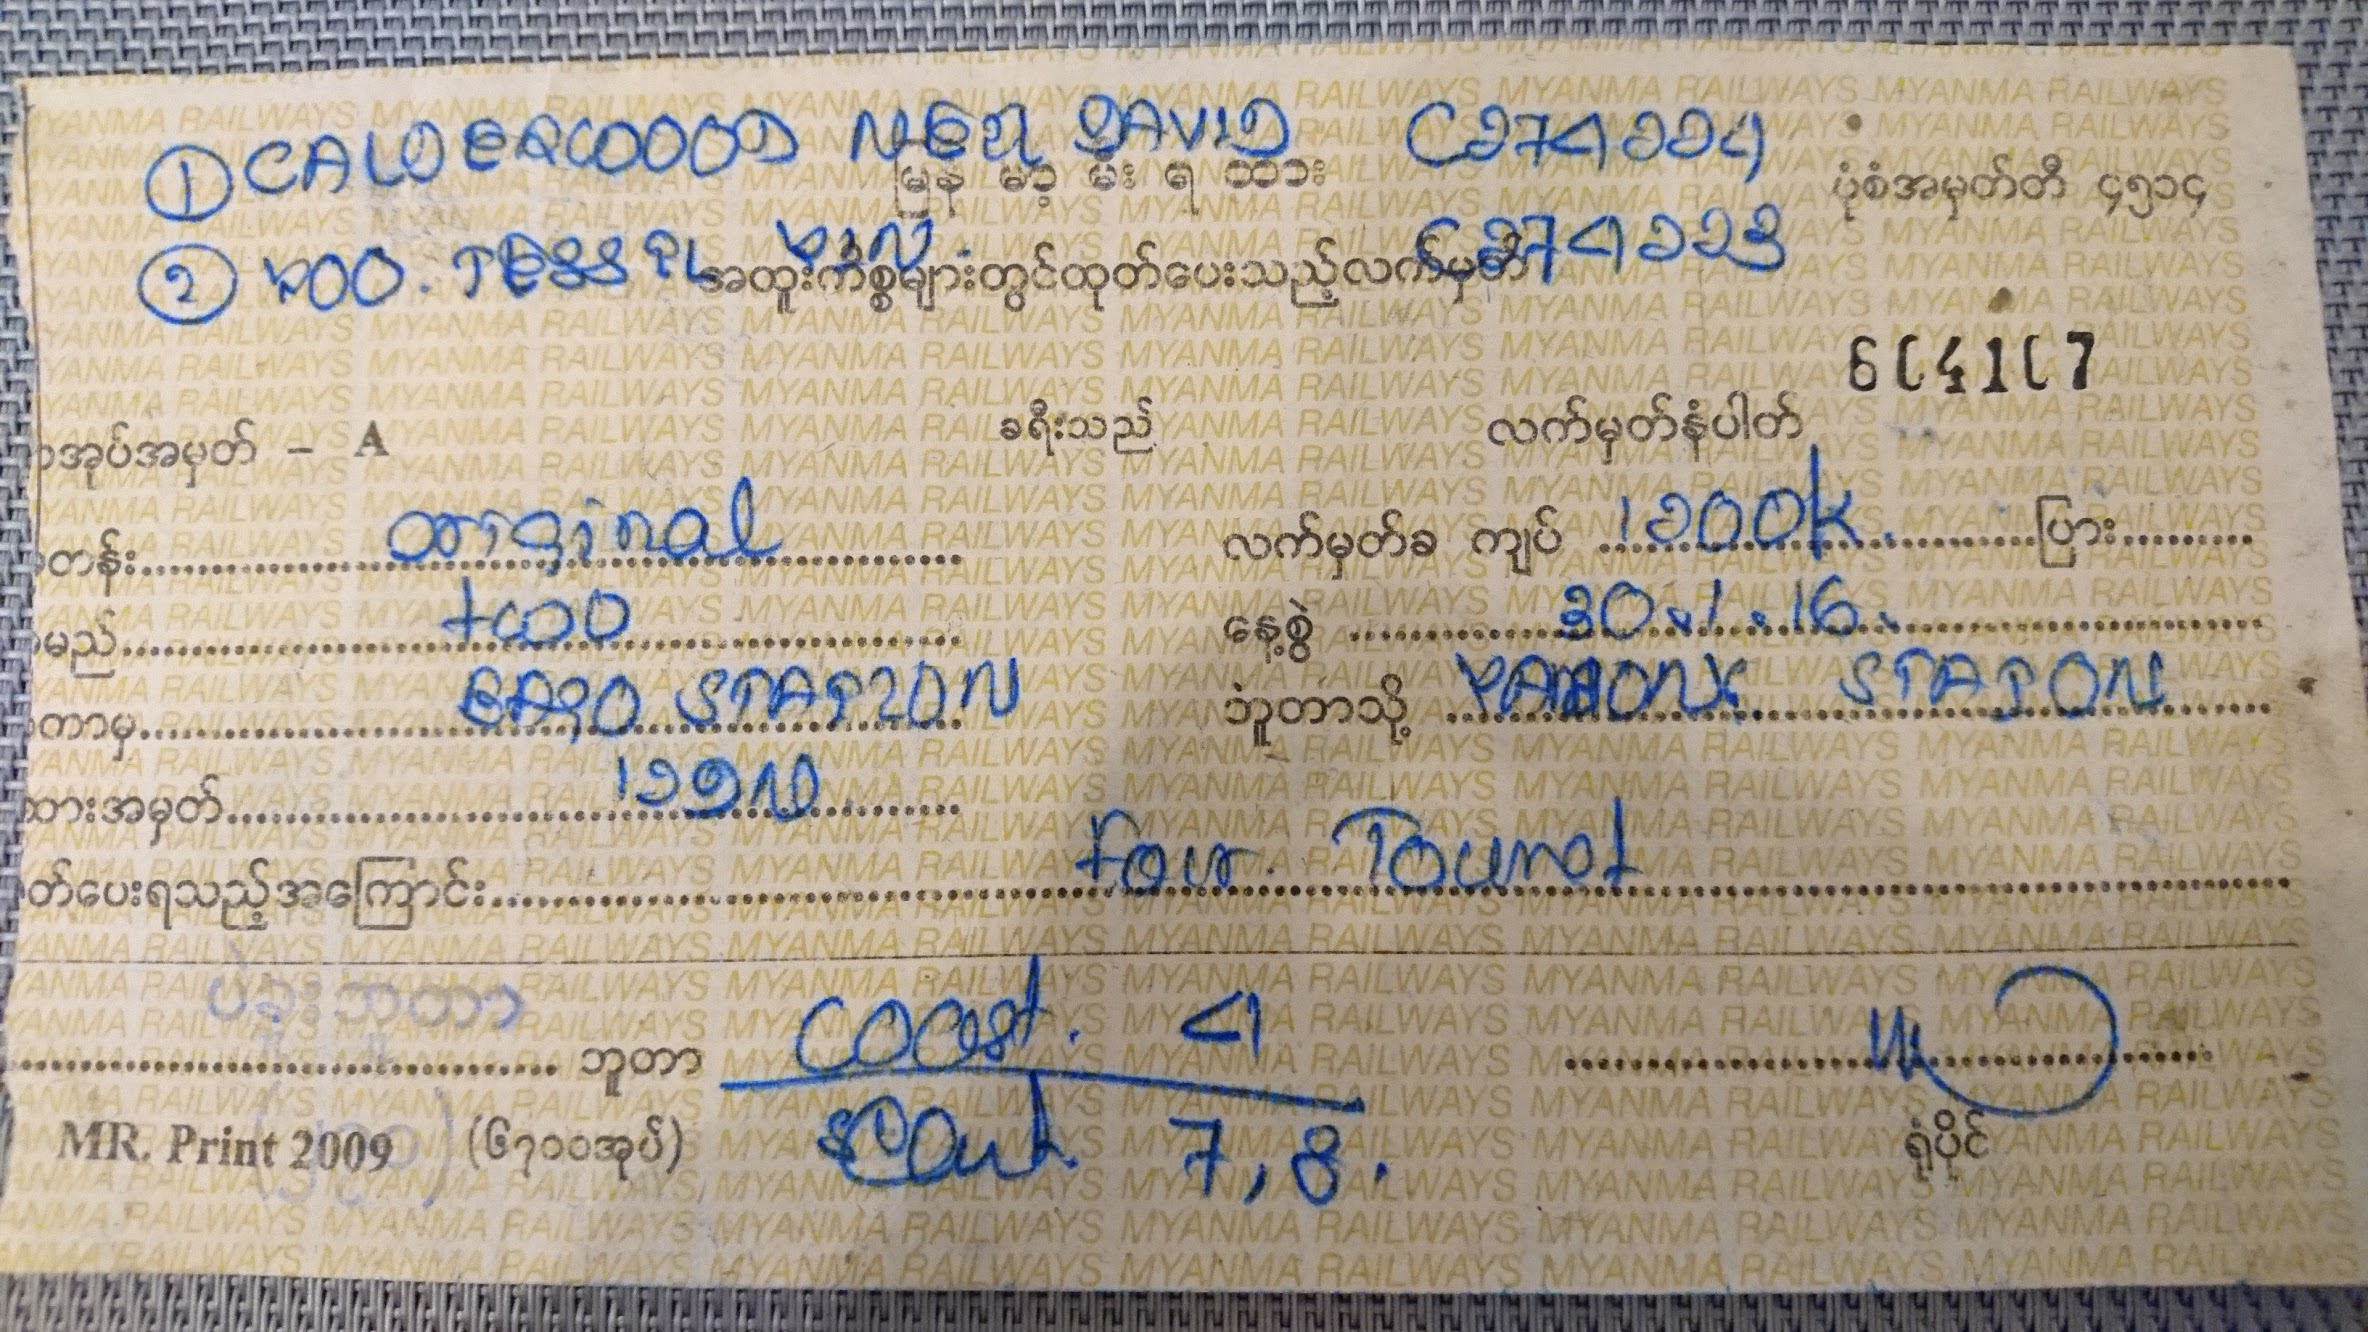 ① CALDERWOOD NEIL DAVID C2741224
မြန် မာ့ မီး ရ ထား ပုံစံအမှတ်တီ ၄၅၁၄
② KOO. TESSPL C2741223
အထူးကိစ္စများတွင်ထုတ်ပေးသည့်လက်မှတ်
604107
အုပ်အမှတ် – A ခရီးသည် လက်မှတ်နံပါတ်
တန်း original လက်မှတ်ခ ကျပ် 1200k. ပြား
မည် two နေ့စွဲ 30.1.16.
တာမှ BAGO STATION ဘူတာသို့ STATION
ထားအမှတ်
တ်ပေးရသည့်အကြောင်း For Tourist
ပဲခူးဘူတာ
ဘူတာ coast. 4
MR. Print 2009 (၆၇၀၀အုပ်) seat 7, 8. ရုံပိုင်
MYANMA RAILWAYS